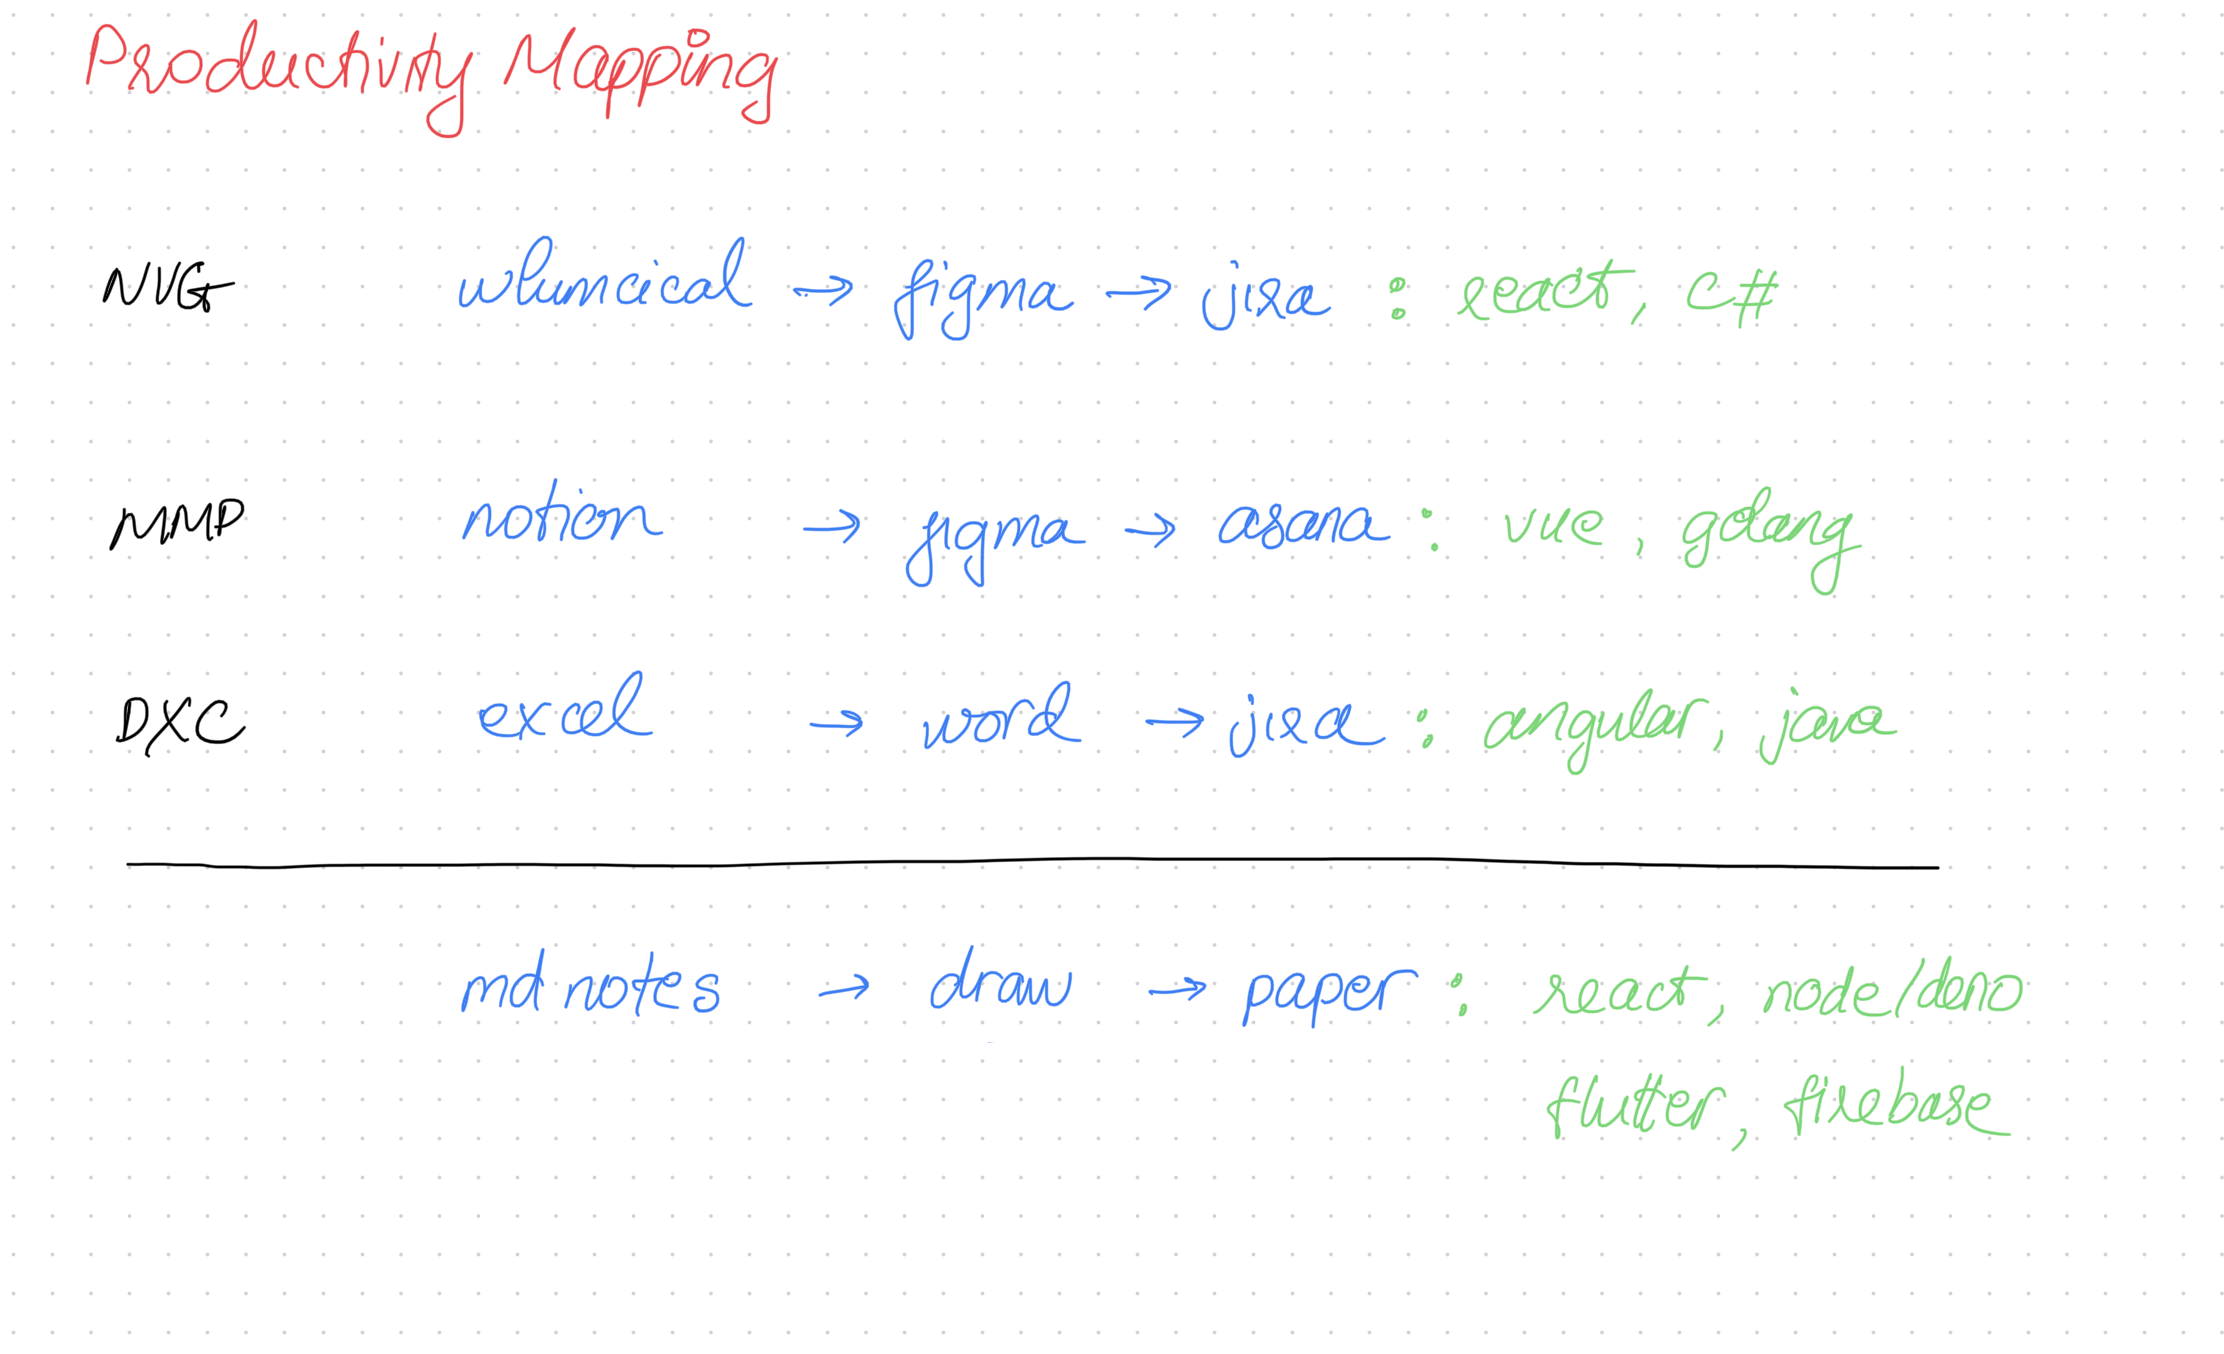 Productivity Mapping
NVG whimcical → figma → jira : react, c#
MMP notion → figma → asana : vue, golang
DXC excel → word → jira : angular, java
md notes → draw → paper : react, node/deno
flutter, firebase